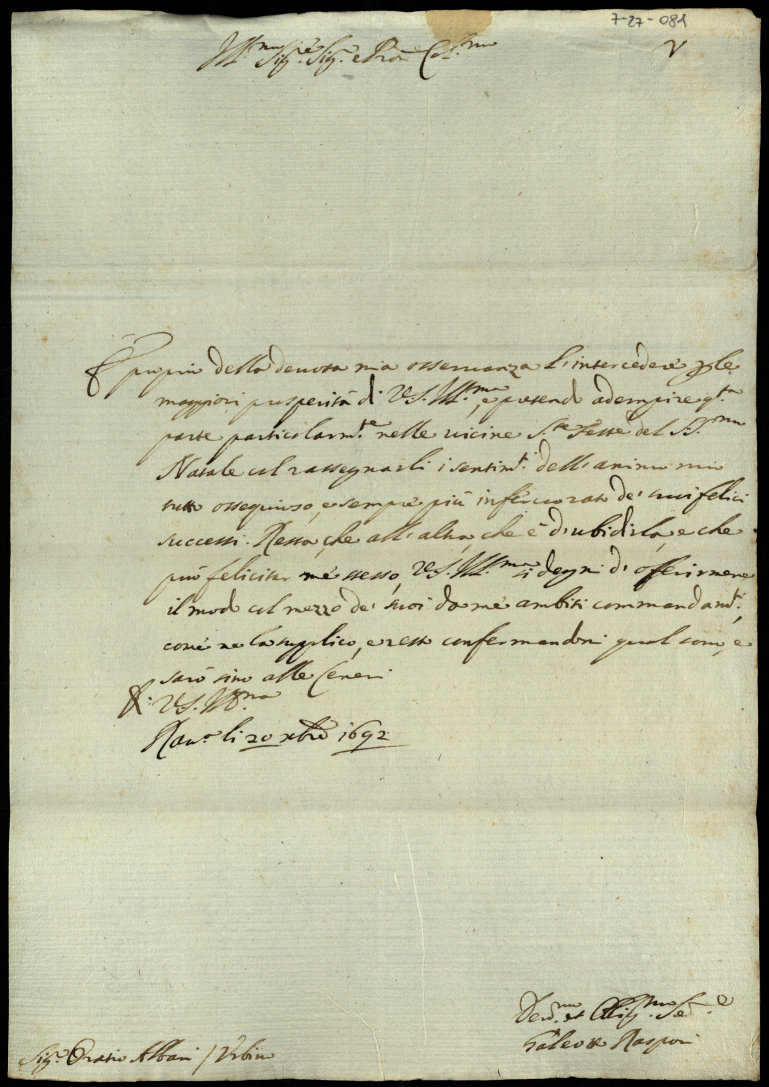 7-27-081
Ill.mo Sig.re Sig.r e Pron Col.mo
È proprio della deuota mia osseruanza l'intercedere p le
maggiori prosperità di V.S. Ill.ma, e pretendo adempire q.ta
parte particolarm.te nelle uicine S.te Feste del SS.mo
Natale col rassegnarli i sentim.ti dell'animo mio
tutto ossequioso, e sempre più inferuorato de' suoi felici
successi. Resta, che all'altra, che è d'ubidirla, e che
può felicitar me stesso, V.S. Ill.ma si degni di offerirmene
il modo col mezzo de' suoi da me ambiti commandam.ti,
come ne la supplico, e resto confermandomi qual sono, e
sarò sino alle Ceneri
Di V.S. Ill.ma
Rau.a li 20 xbre 1692
Deu.mo et Oblig.mo Se.re
Galeotto Rasponi
Sig.r Oratio Albani / Vrbino